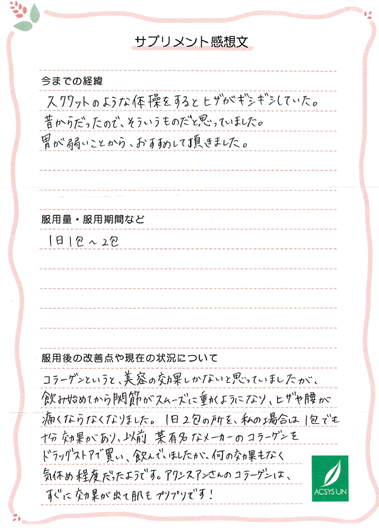 サプリメント感想文
今までの経緯
スクワットのような体操をするとヒザがギシギシしていた。
昔からだったので、そういうものだと思っていました。
胃が弱いことから、おすすめして頂きました。
服用量・服用期間など
1日1包〜2包
服用後の改善点や現在の状況について
コラーゲンというと、美容の効果しかないと思っていましたが、
飲み始めてから関節がスムーズに動かすようになり、ヒザや腰が
痛くならなくなりました。1日2包の所を、私の場合は1包でも
十分効果があり、以前某有名なメーカーのコラーゲンを
ドラッグストアで買い、飲んでいましたが、何の効果もなく
気休め程度だったようです。アクシスアンさんのコラーゲンは、
すぐに効果が出て肌もプリプリです！
ACSYS UN